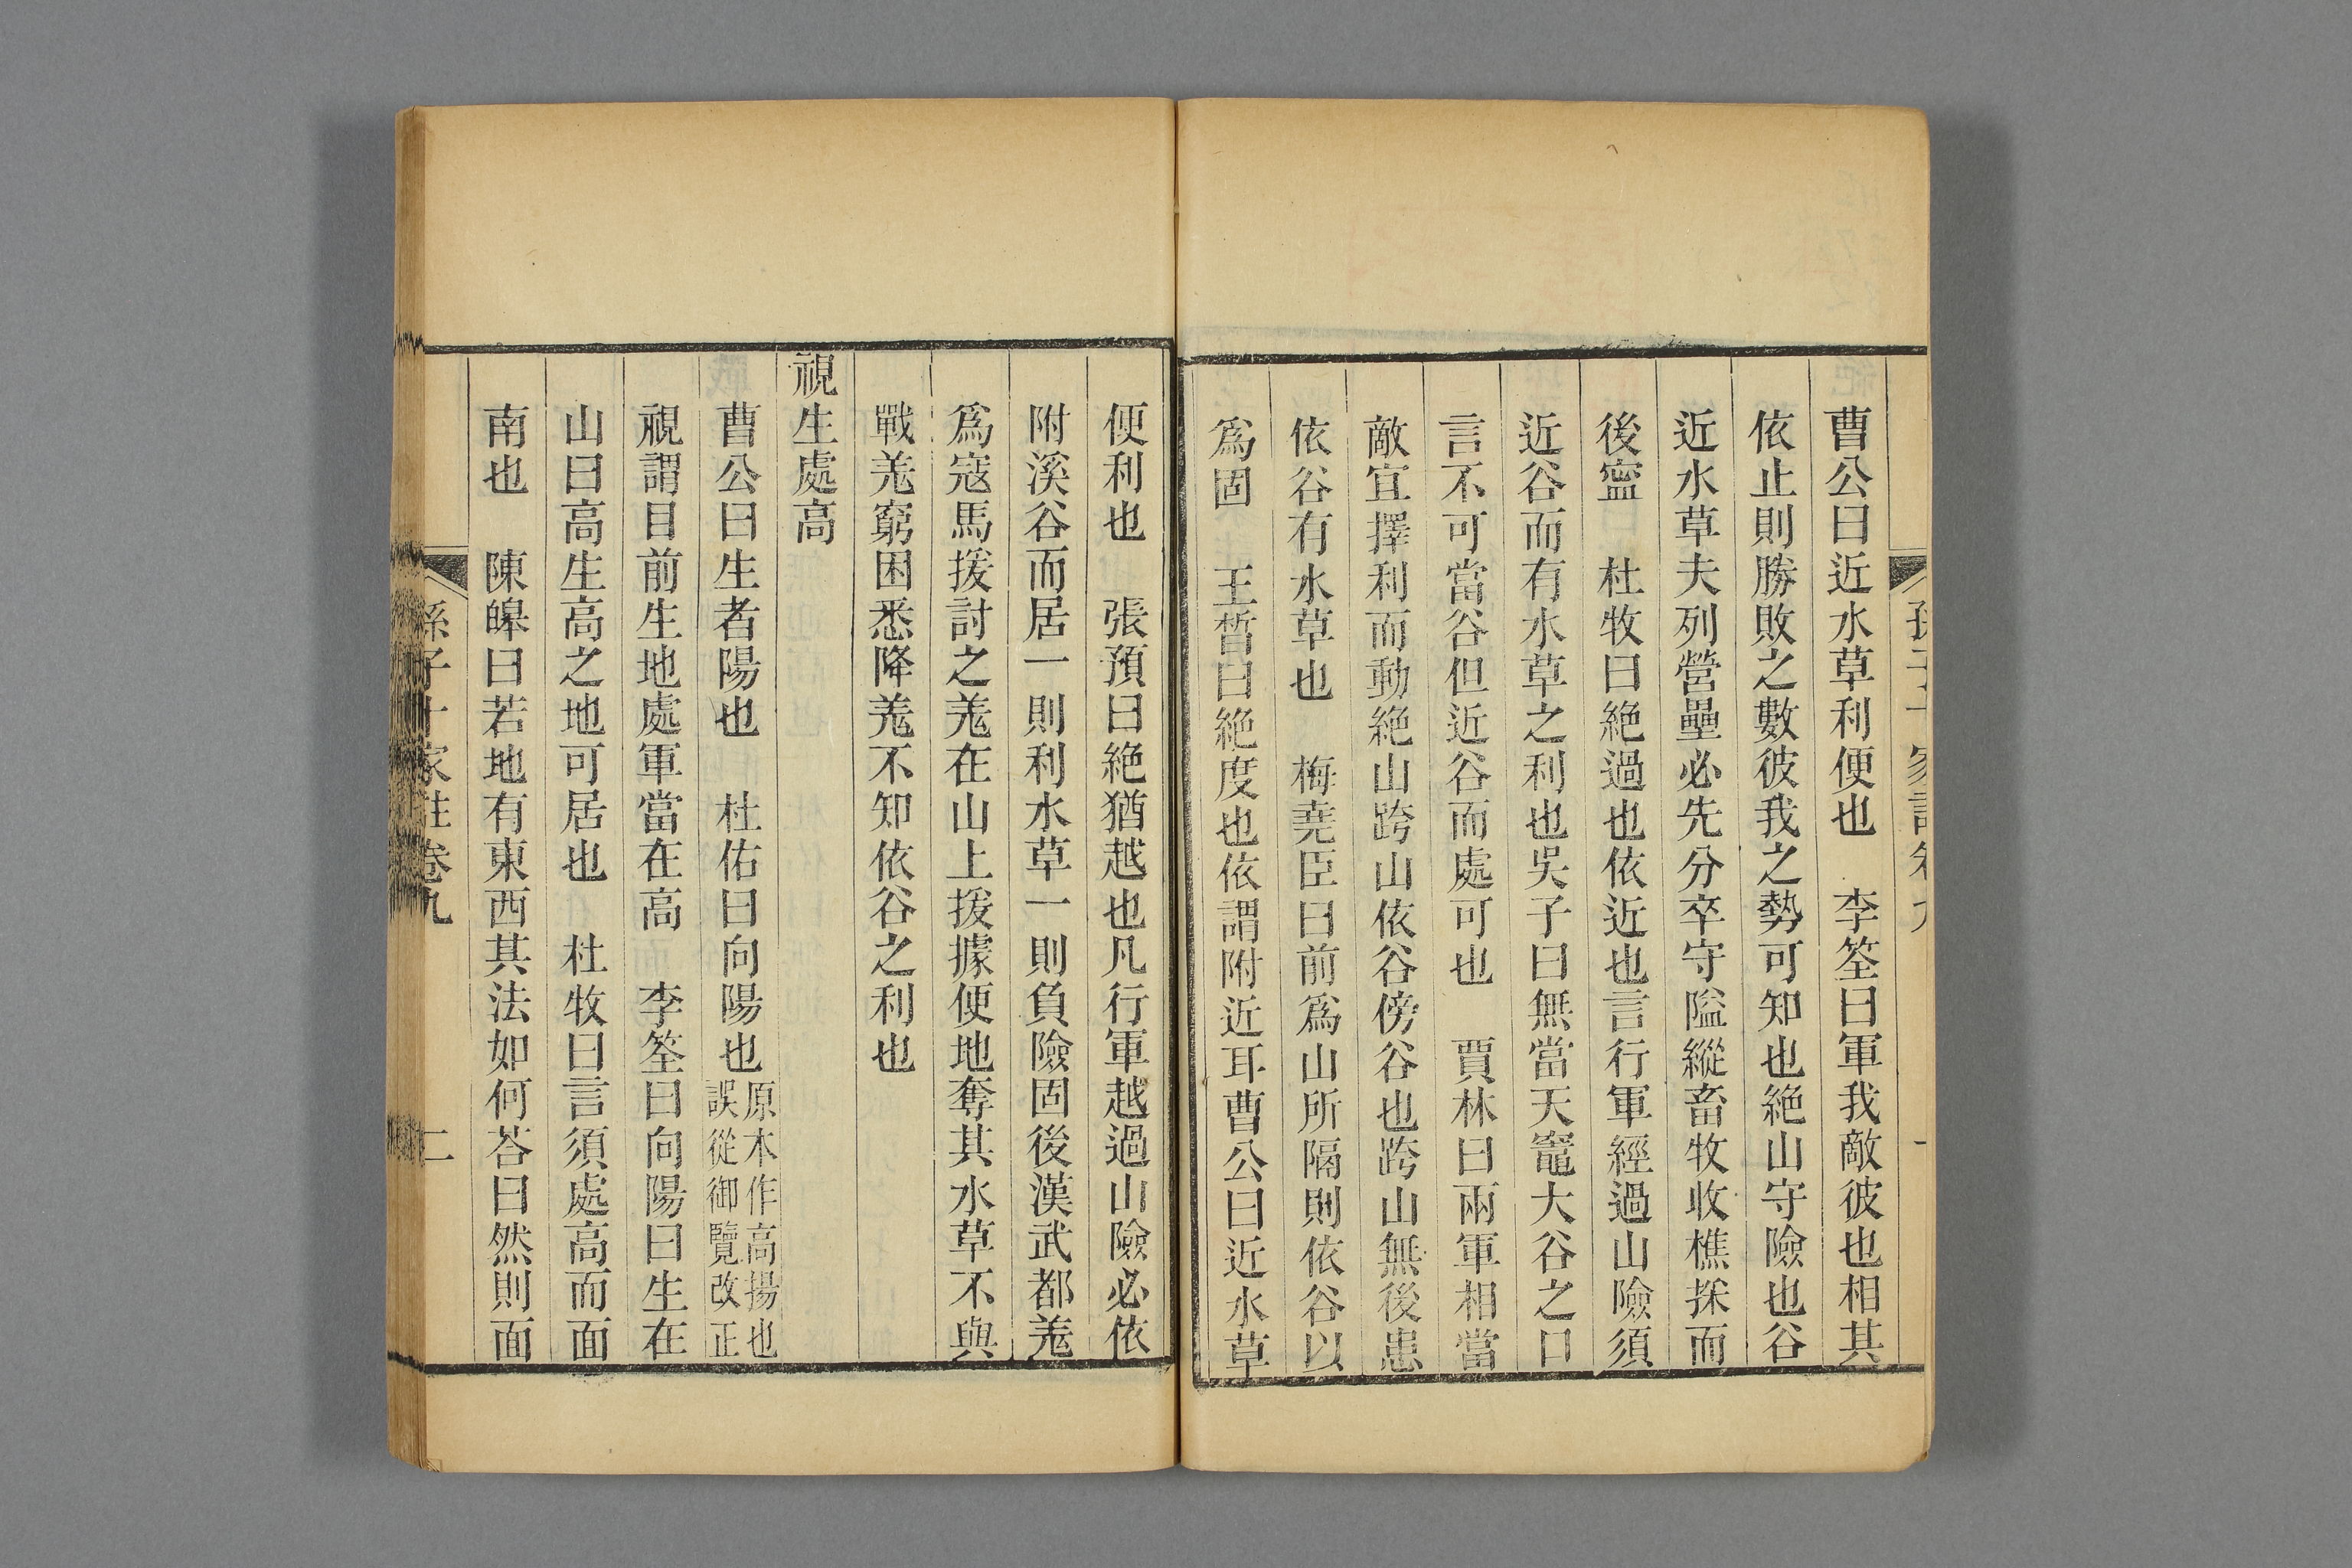 曹公曰近水草利便也　李筌曰軍我敵彼也相其
依止則勝敗之數彼我之勢可知也絶山守險也谷
近水草夫列營壘必先分卒守隘縱畜牧收樵採而
後寧　杜牧曰絶過也依近也言行軍經過山險須
近谷而有水草之利也吳子曰無當天竈大谷之口
言不可當谷但近谷而處可也　賈林曰兩軍相當
敵宜擇利而動絶山跨山依谷傍谷也跨山無後患
依谷有水草也　梅堯臣曰前爲山所隔則依谷以
爲固　王晳曰絶度也依謂附近耳曹公曰近水草
便利也　張預曰絶猶越也凡行軍越過山險必依
附溪谷而居一則利水草一則負險固後漢武都羗
爲寇馬援討之羗在山上援據便地奪其水草不與
戰羗窮困悉降羗不知依谷之利也
視生處高
曹公曰生者陽也　杜佑曰向陽也原本作高揚也
誤從御覽改正
視謂目前生地處軍當在高　李筌曰向陽曰生在
山曰高生高之地可居也　杜牧曰言須處高而面
南也　陳皞曰若地有東西其法如何荅曰然則面
孫子十家註卷九
二